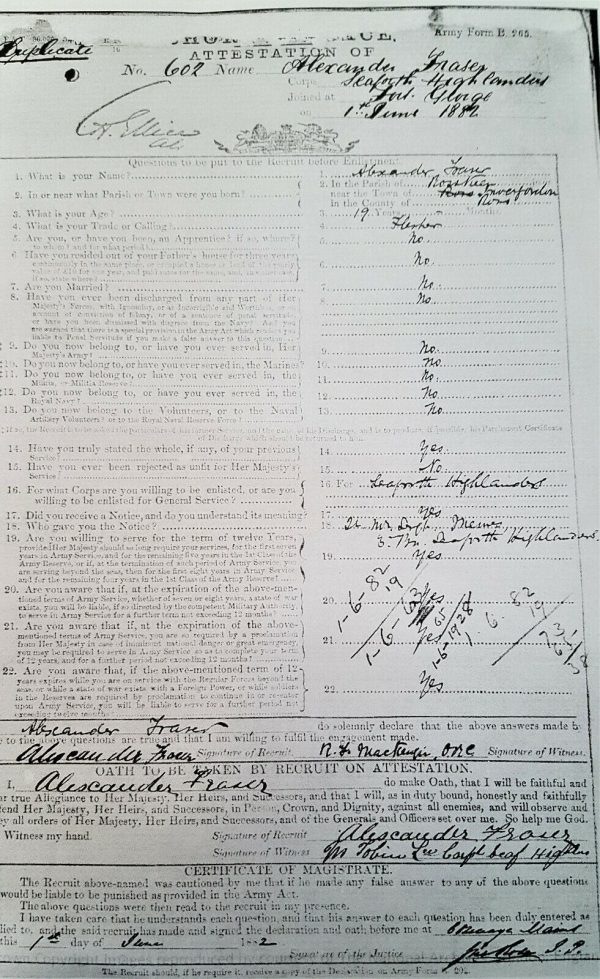 Duplicate
Army Form B. 265.
ATTESTATION OF
No. 602 Name Alexander Fraser
Corps Seaforth Highlanders
Joined at Fort George
on 1st June 1882
Questions to be put to the Recruit before Enlistment.
1. What is your Name? 1. Alexander Fraser
2. In or near what Parish or Town were you born? 2. In the Parish of Rosskeen
near the Town of Invergordon
in the County of Ross
3. What is your Age? 3. 19 Years Months
4. What is your Trade or Calling? 4. Flesher
5. Are you, or have you been, an Apprentice? if so, where? 5. No.
to whom? and for what period?
6. Have you resided out of your Father's house for three years 6. No.
7. Are you Married? 7. No
8. Have you ever been discharged from any part of Her 8. No.
Majesty's Forces, with Ignominy, or as Incorrigible and Worthless, or on
account of conviction of felony, or of a sentence of penal servitude,
or have you been dismissed with disgrace from the Navy? And you
are warned that there is a special provision in the Army Act which renders you
liable to Penal Servitude if you make a false answer to this question
9. Do you now belong to, or have you ever served in, Her 9. No.
Majesty's Army?
10. Do you now belong to, or have you ever served in, the Marines? 10. No.
11. Do you now belong to, or have you ever served in, the 11. No.
Militia, or Militia Reserve?
12. Do you now belong to, or have you ever served in, the 12. No
Royal Navy?
13. Do you now belong to the Volunteers, or to the Naval 13. No
Artillery Volunteers? or to the Royal Naval Reserve Force?
14. Have you truly stated the whole, if any, of your previous 14. Yes.
Service?
15. Have you ever been rejected as unfit for Her Majesty's 15. No.
Service?
16. For what Corps are you willing to be enlisted, or are you 16. For Seaforth Highlanders
willing to be enlisted for General Service?
17. Did you receive a Notice, and do you understand its meaning? 17. Yes
18. Who gave you the Notice? 18.
Seaforth Highlanders.
19. Are you willing to serve for the term of twelve Years, 19. Yes
provided Her Majesty should so long require your services, for the first seven
years in Army Service, and for the remaining five years in the 1st Class of the
Army Reserve; or if, at the termination of such period of Army Service, you
are serving beyond the seas, then for the first eight years in Army Service
and for the remaining four years in the 1st Class of the Army Reserve?
20. Are you aware that if, at the expiration of the above-men- 20. Yes
tioned terms of Army Service, whether of seven or eight years, a state of war
exists, you will be liable, if so directed by the competent Military Authority,
to serve in Army Service for a further term not exceeding 12 months?
21. Are you aware that if, at the expiration of the above- 21. Yes
mentioned terms of Army Service, you are so required by a proclamation
from Her Majesty in case of imminent national danger or great emergency,
you may be required to serve in Army Service so as to complete your term
of 12 years, and for a further period not exceeding 12 months?
1-6-82
19
1-6-63
22. Are you aware that, if the above-mentioned term of 12 22. Yes
years expires while you are on service with the Regular Forces beyond the
seas, or while a state of war exists with a Foreign Power, or while soldiers
in the Reserves are required by proclamation to continue in or re-enter
upon Army Service, you will be liable to serve for a further period not
exceeding twelve months?
Alexander Fraser do solemnly declare that the above answers made by
to the above questions are true and that I am willing to fulfil the engagement made.
Alexander Fraser Signature of Recruit. Signature of Witness.
OATH TO BE TAKEN BY RECRUIT ON ATTESTATION.
I, Alexander Fraser do make Oath, that I will be faithful and
true Allegiance to Her Majesty, Her Heirs, and Successors, and that I will, as in duty bound, honestly and faithfully
Her Majesty, Her Heirs, and Successors, in Person, Crown, and Dignity, against all enemies, and will observe and
all orders of Her Majesty, Her Heirs, and Successors, and of the Generals and Officers set over me. So help me God.
Witness my hand. Signature of Recruit Alexander Fraser
Signature of Witness
CERTIFICATE OF MAGISTRATE.
The Recruit above-named was cautioned by me that if he made any false answer to any of the above questions
would be liable to be punished as provided in the Army Act.
The above questions were then read to the recruit in my presence.
I have taken care that he understands each question, and that his answer to each question has been duly entered as
to, and the said recruit has made and signed the declaration and oath before me at
this 1st day of June 1882
Signature of the Justice
The Recruit should, if he require it, receive a copy of the Declaration on Army Form